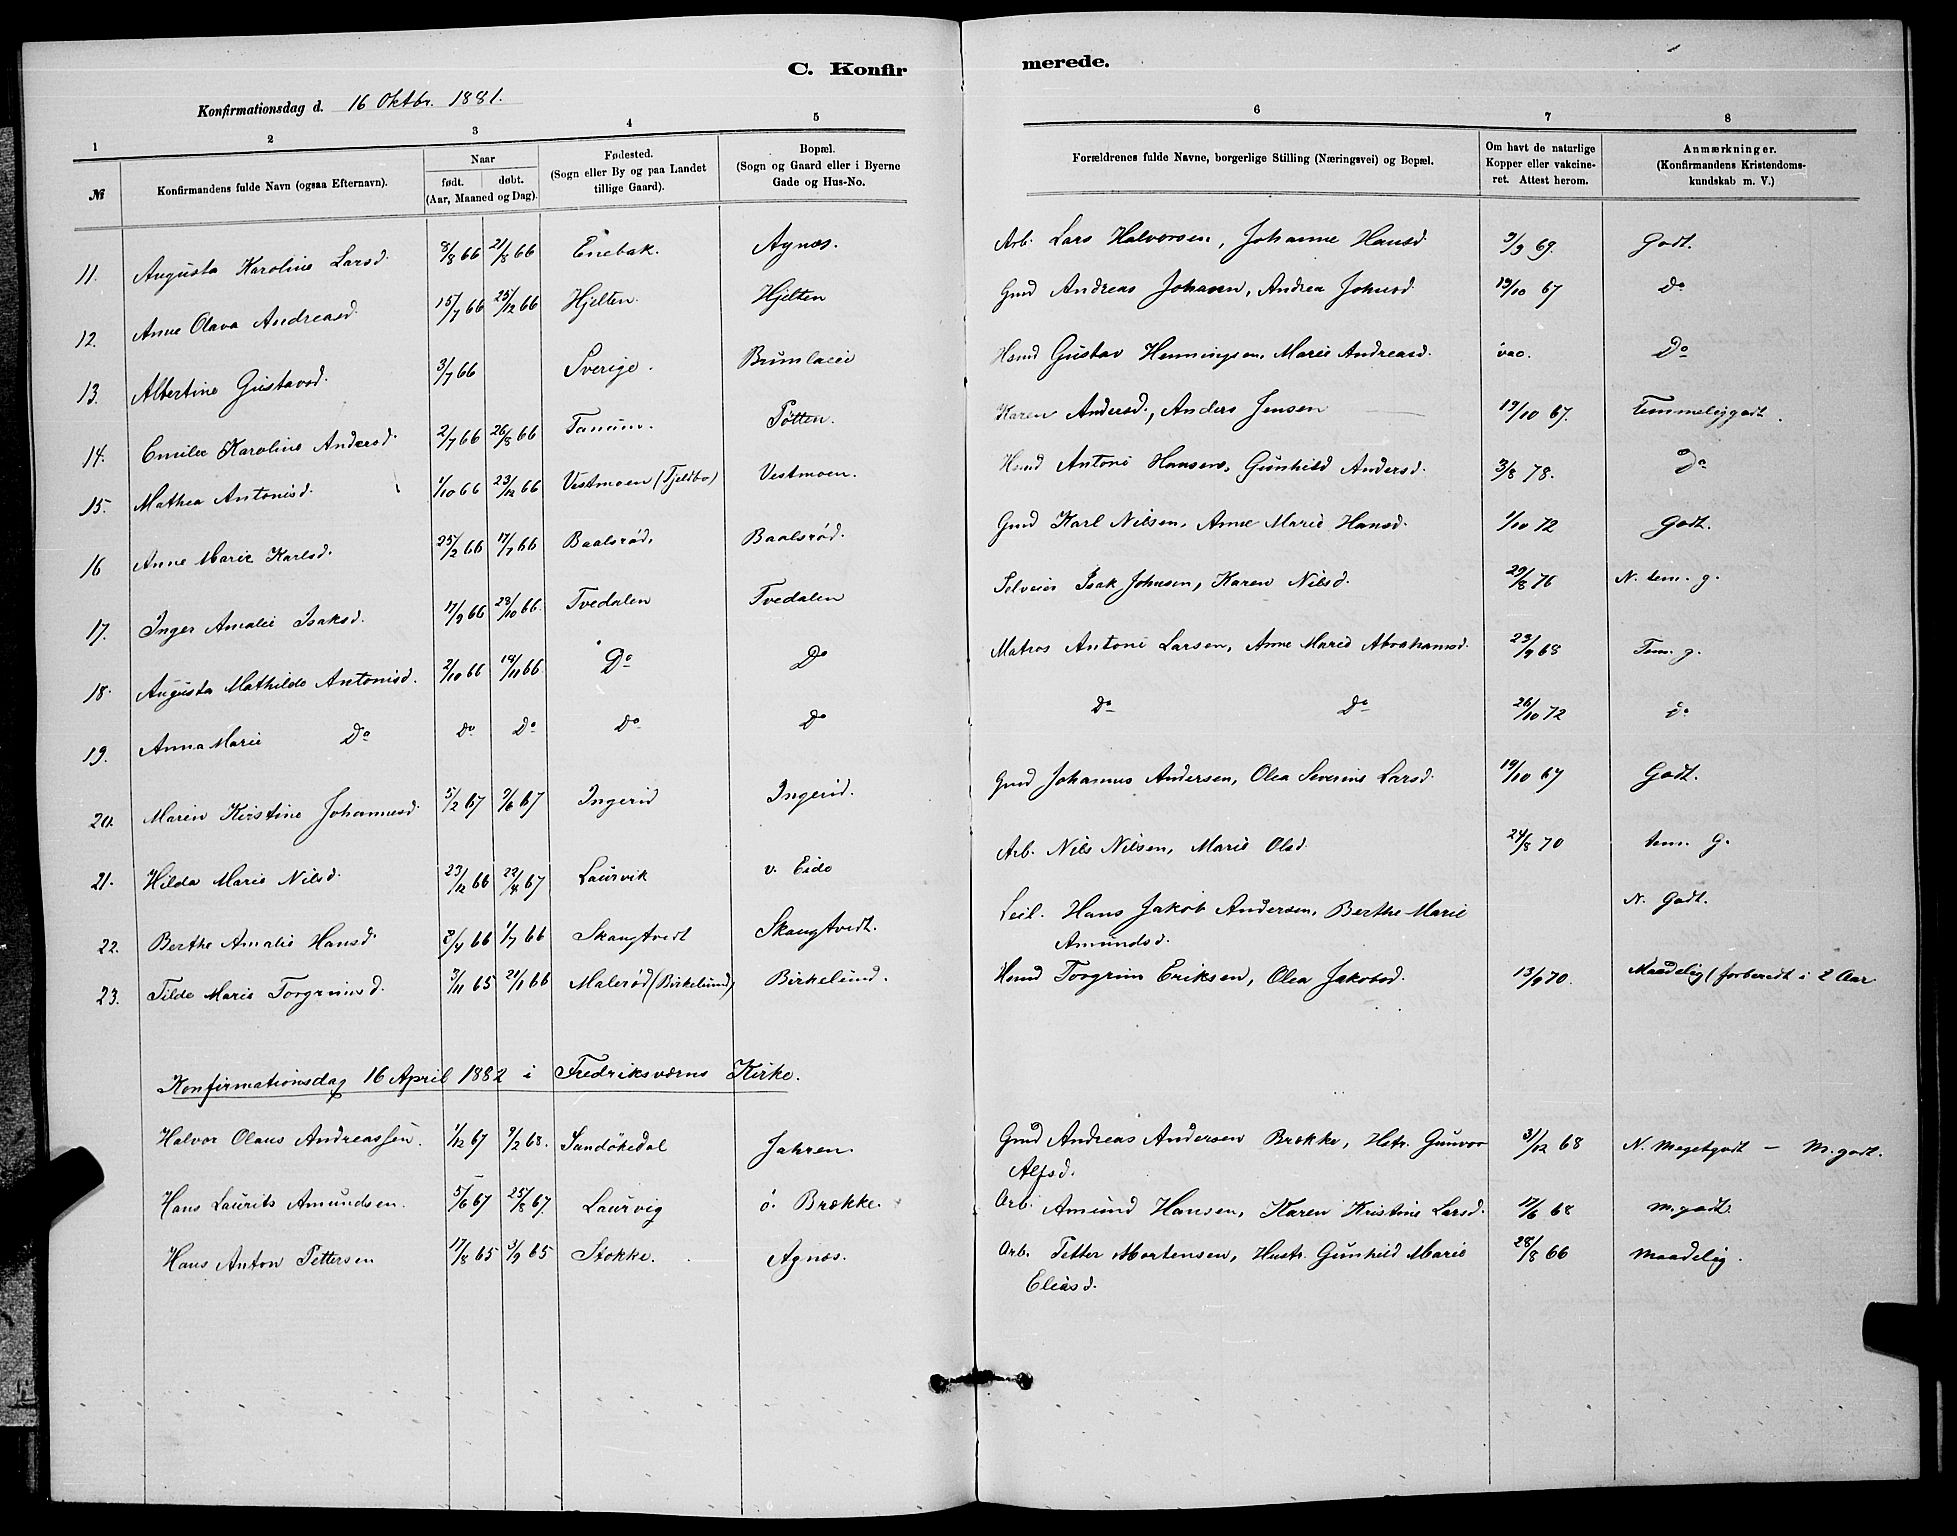 C. Konfir merede.
Konfirmationsdag d. 16 Oktbr. 1881.
1 2 3 4 5 6 7 8
№ Konfirmandens fulde Navn (ogsaa Efternavn). Naar født. døbt. (Aar, Maaned og Dag). Fødested. (Sogn eller By og paa Landet tillige Gaard). Bopæl. (Sogn og Gaard eller i Byerne Gade og Hus-No. Forældrenes fulde Navne, borgerlige Stilling (Næringsvei) og Bopæl. Om havt de naturlige Kopper eller vakcineret. Attest herom. Anmærkninger. (Konfirmandens Kristendomskundskab m. V.)
11. Augusta Karoline Larsd. 8/8 66 21/8 66 Enebak. Agnæs. Arb. Lars Halvorsen, Johanne Hansd. 9/9 69. Godt.
12. Anne Olava Andreasd. 15/7 66 25/12 66 Hjelten. Hjelten Gmd Andreas Johansn, Andrea Johnsd. 19/10 67 Do
13. Albertine Gustavsd. 3/7 66 Sverige. Brunlanes Hsmd Gustav Henningsen, Marie Andreasd. vac. Do
14. Emilie Karoline Andersd. 2/7 66 26/8 66 Tanum. Pøtten. Karen Andersd., Anders Jensen 19/10 67. Temmeliggodt.
15. Mathea Antonisd. 1/10 66 23/12 66 Vestmoen (Tjeldbo) Vestmoen. Hsmd Antoni Hansen, Gunhild Andersd. 3/8 78. Do
16 Anne Marie Karlsd. 25/2 66 17/7 66 Baalsrød. Baalsrød. Gmd Karl Nilsen, Anne Marie Hansd. 1/10 72 Godt.
17. Inger Amalie Isaksd. 17/9 66 28/10 66. Tvedalen Tvedalen Selveier Isak Johnsen, Karen Nilsd. 29/8 76 N. tem. g.
18. Augusta Mathilde Antonisd. 2/10 66 19/11 66 Do Do Matros Antoni Larsen, Anne Marie Abrahamsd. 23/9 68 Tem. g.
19. Anna Marie Do Do Do Do Do Do Do 26/10 72 do
20. Maren Kirstine Johannesd. 5/2 67 9/6 67 Ingerid Ingerid. Gmd Johannes Andersen, Olea Severine Larsd. 19/10 67 Godt.
21. Hilda Marie Nilsd. 23/12 66 22/4 67 Laurvik v. Eide Arb. Nils Nilsen, Marie Olsd. 24/8 70 tem. G.
22. Berthe Amalie Hansd. 8/4 66 1/7 66 Skangtvedt Skangtvedt. Leil. Hans Jakob Andersen, Berthe Marie N. Godt.
Amundsd.
23. Tilde Marie Torgrimsd. 3/11 65 21/1 66 Malerød (Birkelund) Birkelund. Hsmd Torgrim Eriksen, Olea Jakobsd. 13/9 70. Maadelig (forberedt i 2 Aar
Konfirmationsdag 16 April 1882 i Fredriksværns Kirke.
Halvor Olaus Andreassen. 1/12 67 9/2 68. Sandøkedal Jahren. Gmd Andreas Andersen Brække, Hstr. Gunvor 31/12 68 N. Megetgodt — M. godt.
Alfsd.
Hans Laurits Amundsen. 5/6 67 25/8 67. Laurvig ø. Brække. Arb. Amund Hansen, Karen Kristine Larsd. 17/6 68 M. godt.
Hans Anton Pettersen 17/8 65 3/9 65 Stokke. Agnæs. Arb. Petter Mortensen, Hustr. Gunhild Marie 28/8 66 Maadelig.
Eliasd.